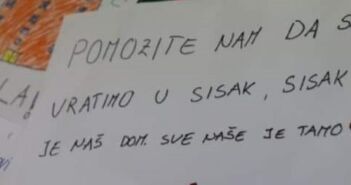 POMOZITE NAM DA S
LA!
VRATIMO U SISAK, SISAK
JE NAŠ DOM. SVE NAŠE JE TAMO